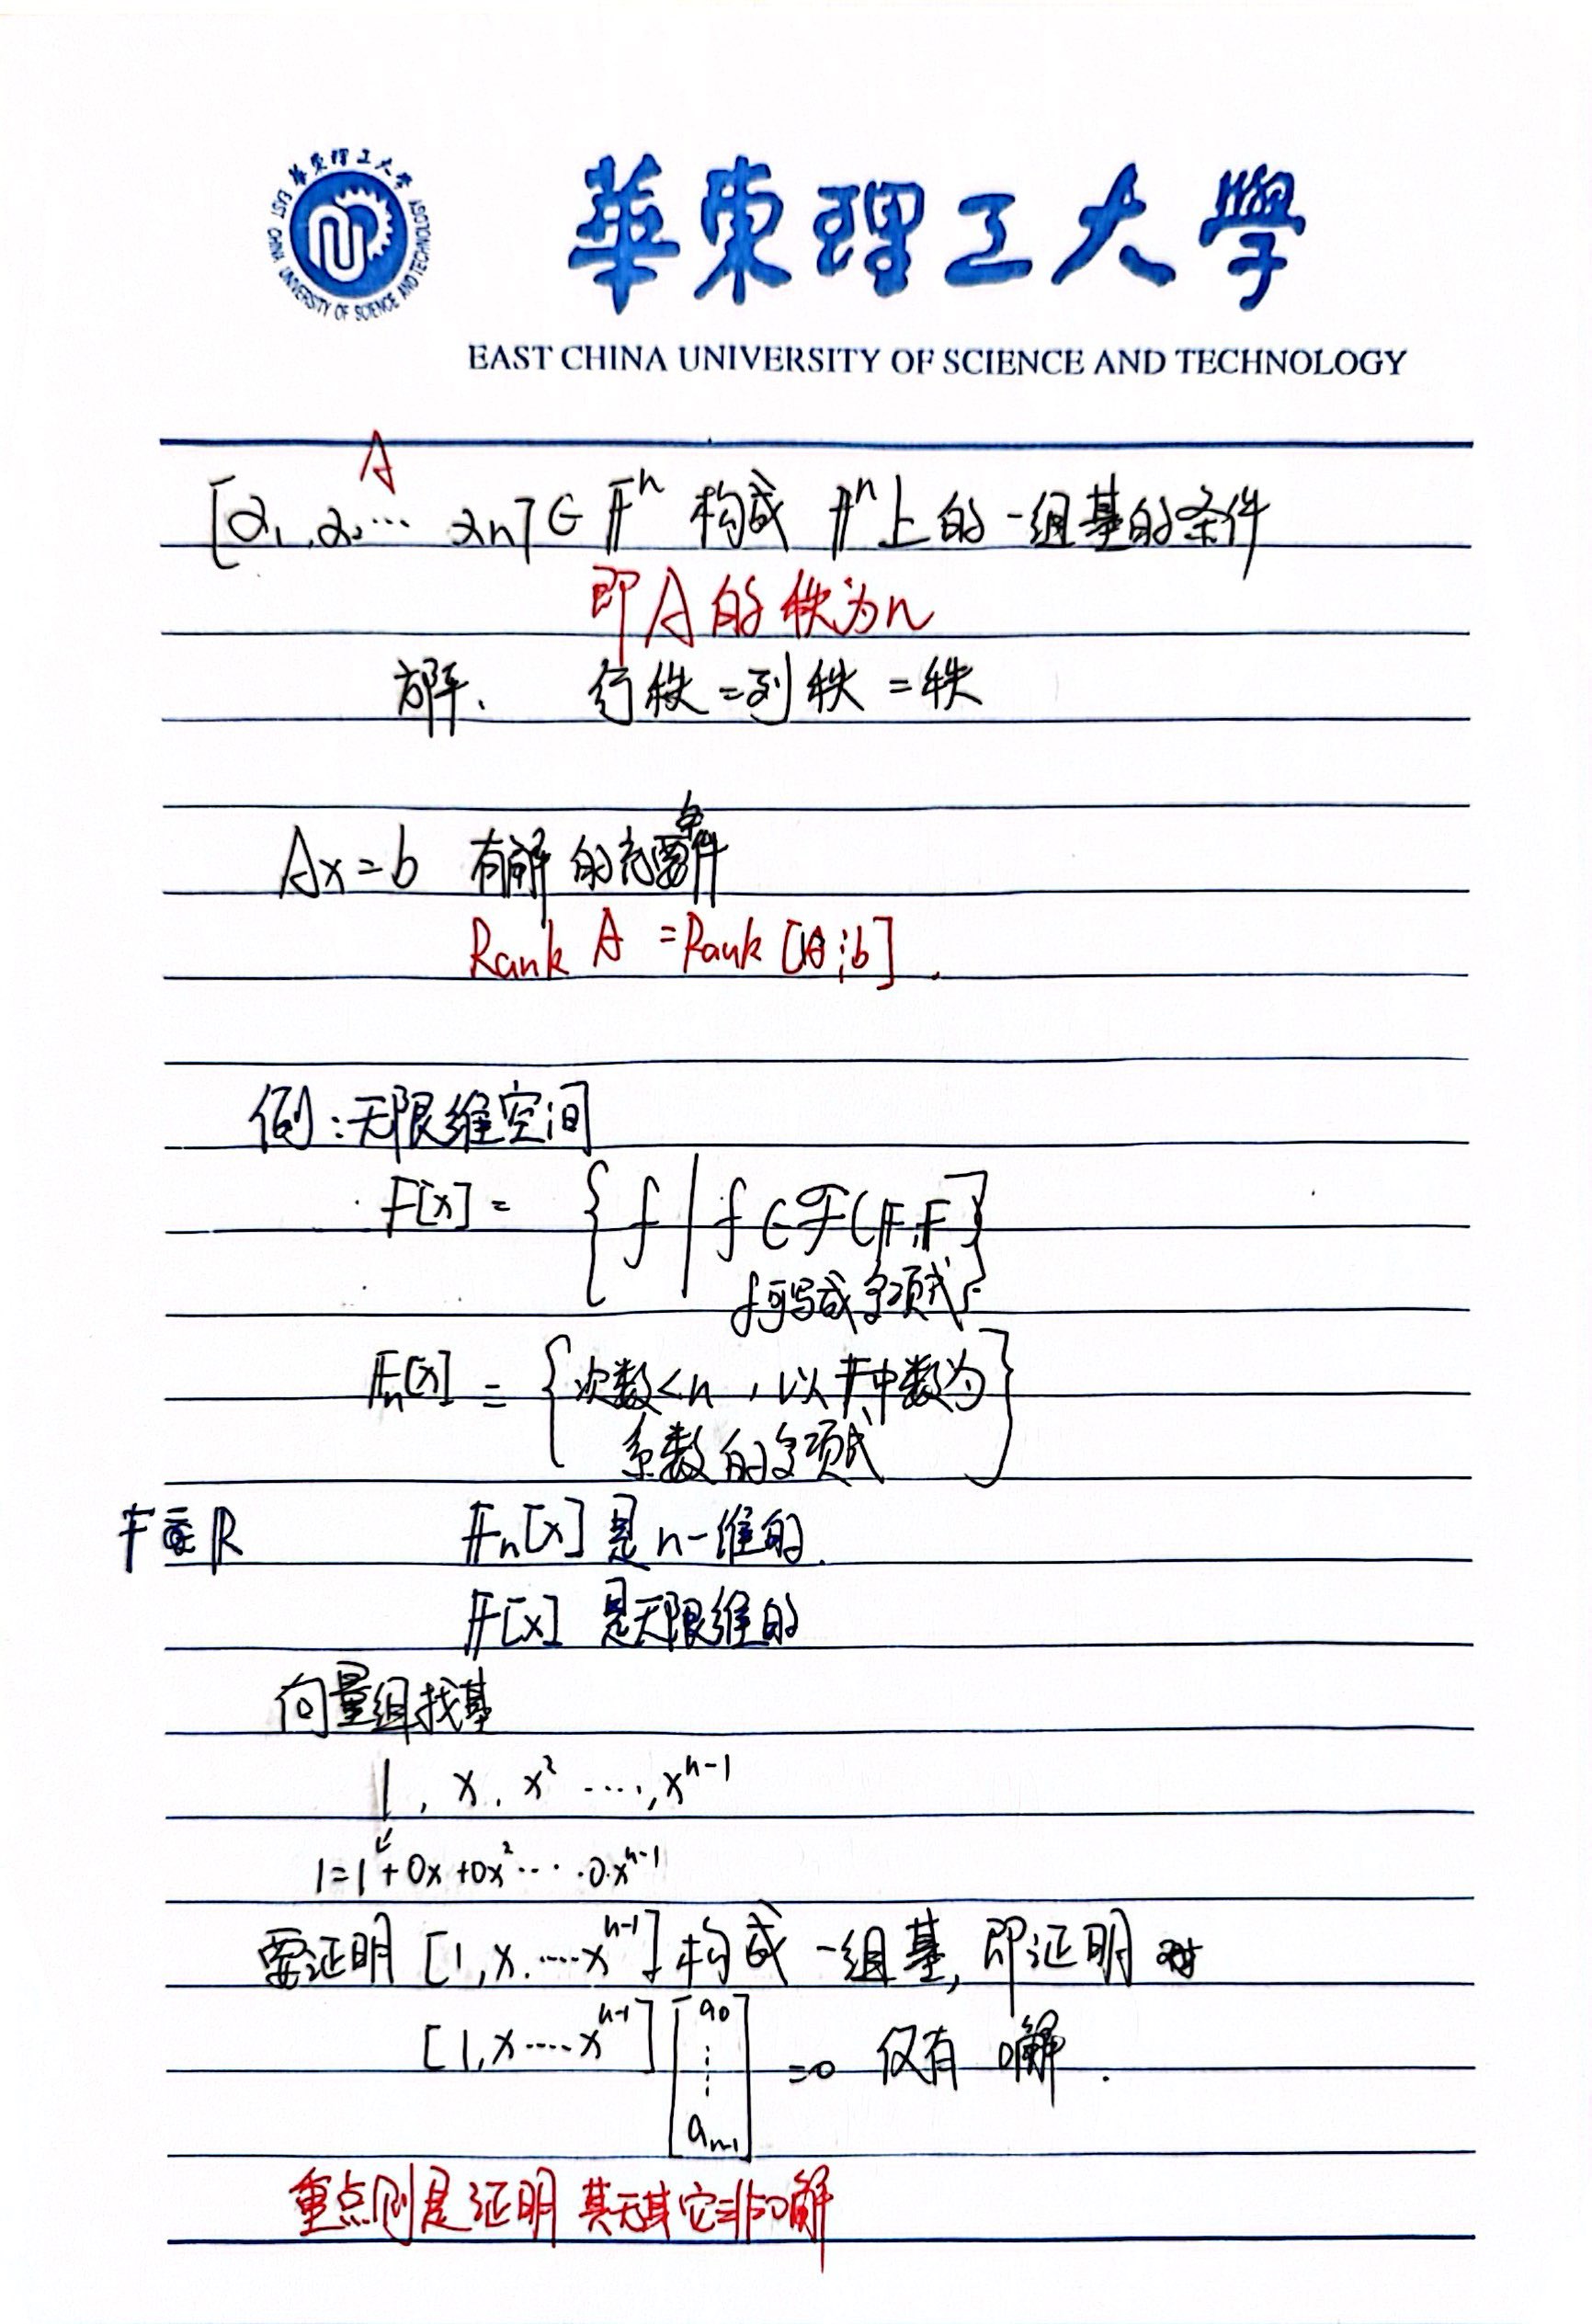 華東理工大學
EAST CHINA UNIVERSITY OF SCIENCE AND TECHNOLOGY
華東理工大學
EAST CHINA UNIVERSITY OF SCIENCE AND TECHNOLOGY
A
[α₁,α₂,… αn] ∈ Fⁿ 构成 Fⁿ上的一组基的条件
即A的秩为n
方阵. 行秩=列秩=秩
Ax=b 有解的充要条件
Rank A = Rank [A⋮b].
例:无限维空间
F[x] = { f | f ∈ F(F,F)
f可写成多项式 }
Fn[x] = { 次数<n, 以F中数为
系数的多项式 }
F R Fn[x] 是n-维的.
F[x] 是无限维的
向量组找基
1, x, x² …, xⁿ⁻¹
1=1+0x+0x²…·0·xⁿ⁻¹
要证明 [1,x,…xⁿ⁻¹] 构成一组基, 即证明对
[1,x…xⁿ⁻¹] [a₀ ⋮ aₙ₋₁] =0 仅有0解.
重点则是证明其无其它非0解